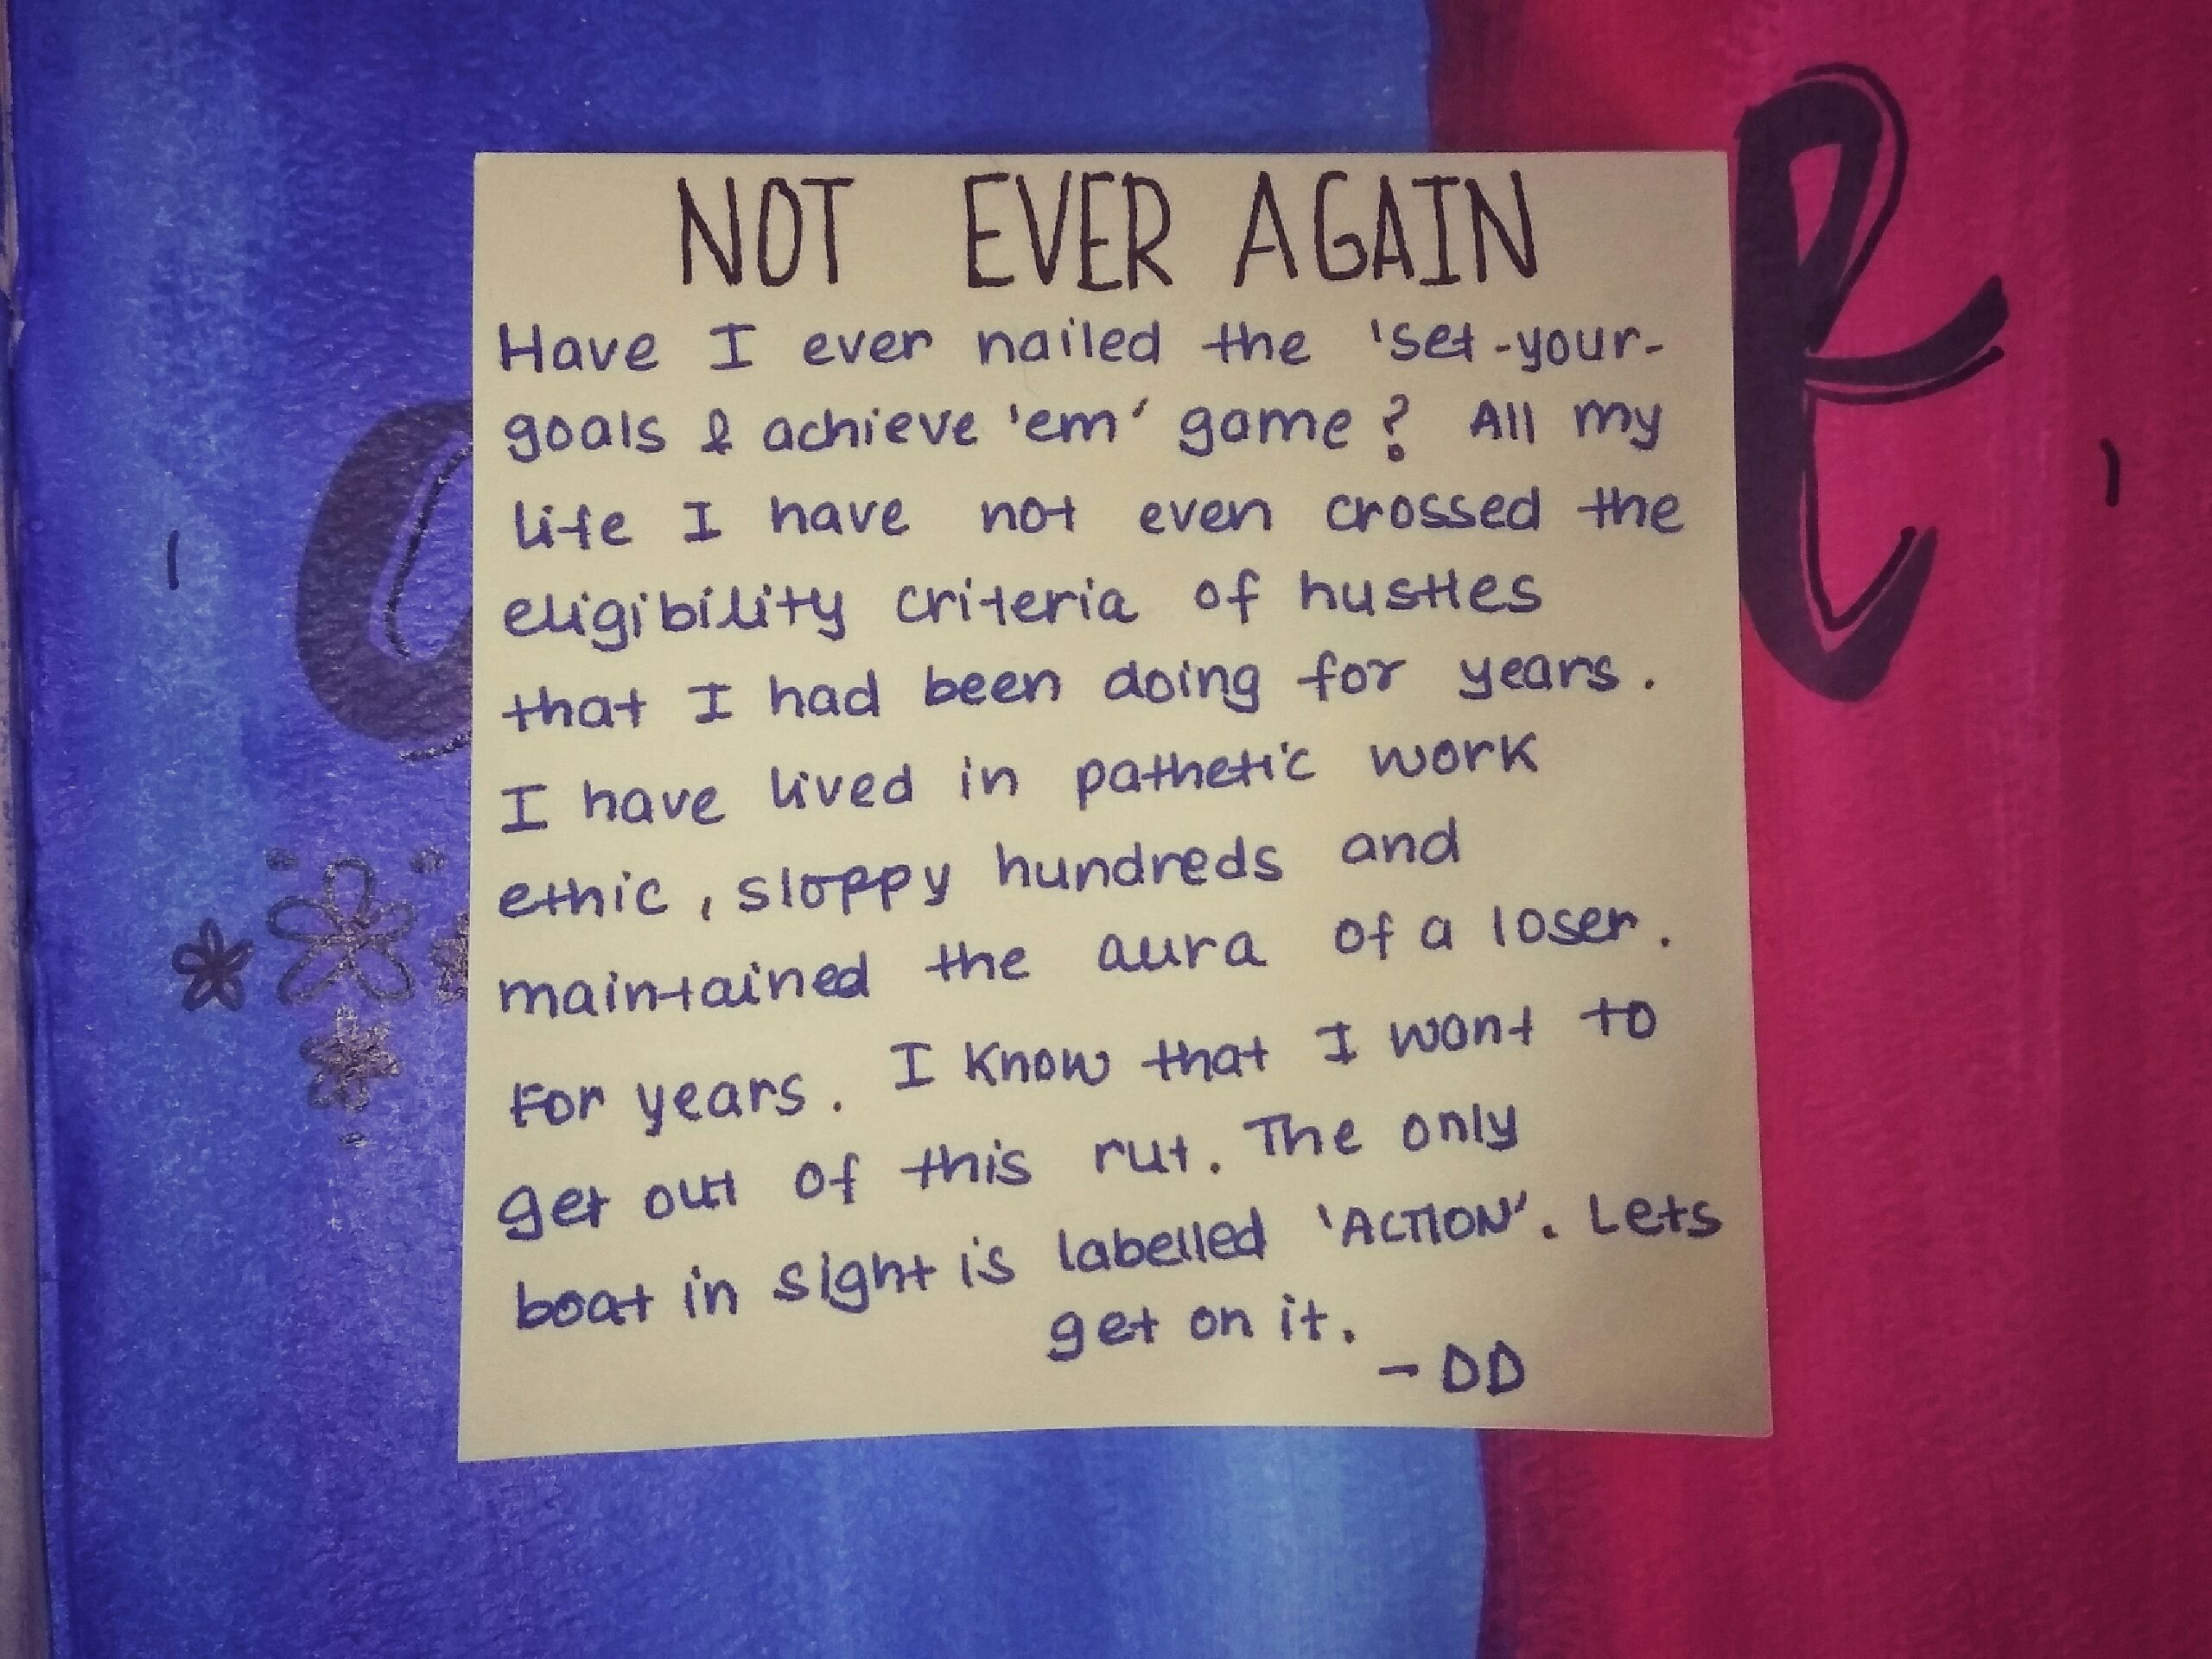 NOT EVER AGAIN
Have I ever nailed the 'set-your-
goals & achieve 'em' game? All my
life I have not even crossed the
eligibility criteria of hustles
that I had been doing for years.
I have lived in pathetic work
ethic, sloppy hundreds and
maintained the aura of a loser.
For years. I know that I want to
get out of this rut. The only
boat in sight is labelled 'ACTION'. Lets
get on it.
- DD